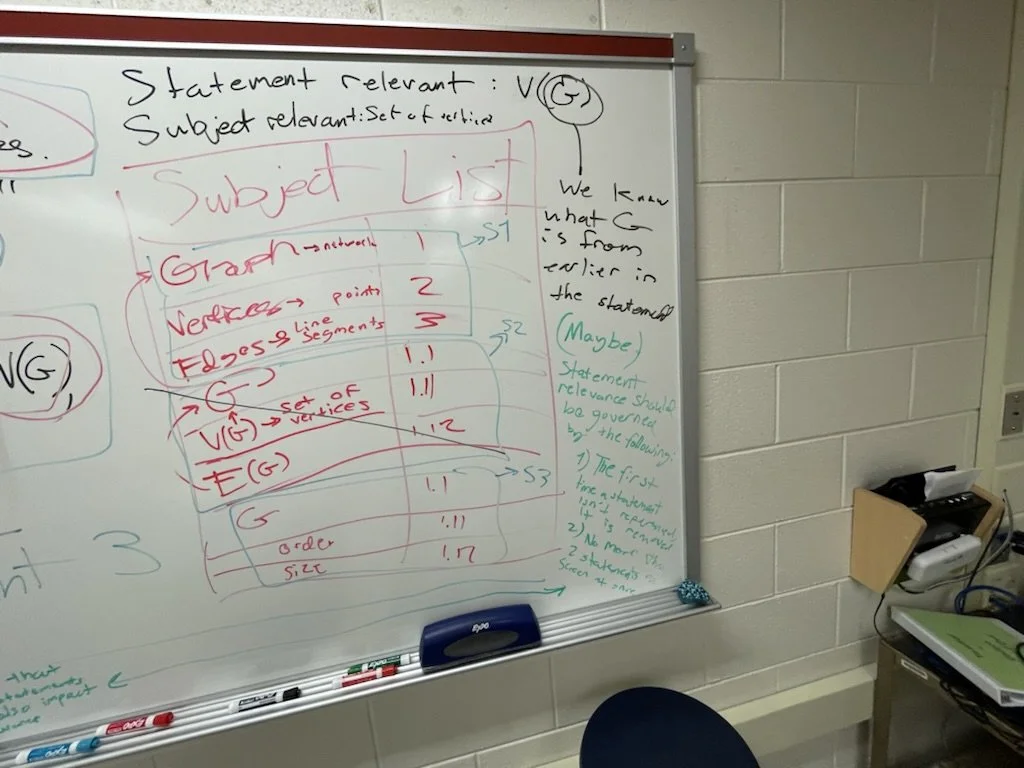 Statement relevant : V(G)
Subject relevant: Set of vertices
Subject List
Graph → network 1
Vertices → points 2
Edges → Line Segments 3
S1
G 1.1
V(G) → set of vertices 1.11
E(G) 1.12
S2
G 1.1
order 1.11
size 1.12
S3
We know
what G
is from
earlier in
the statement
(Maybe)
Statement
relevance should
be governed
by the following:
1) The first
time a statement
isn't
it is removed
2) No more
2 statements
Screen at once
es.
V(G),
3
that
statements
also impact
EXPO